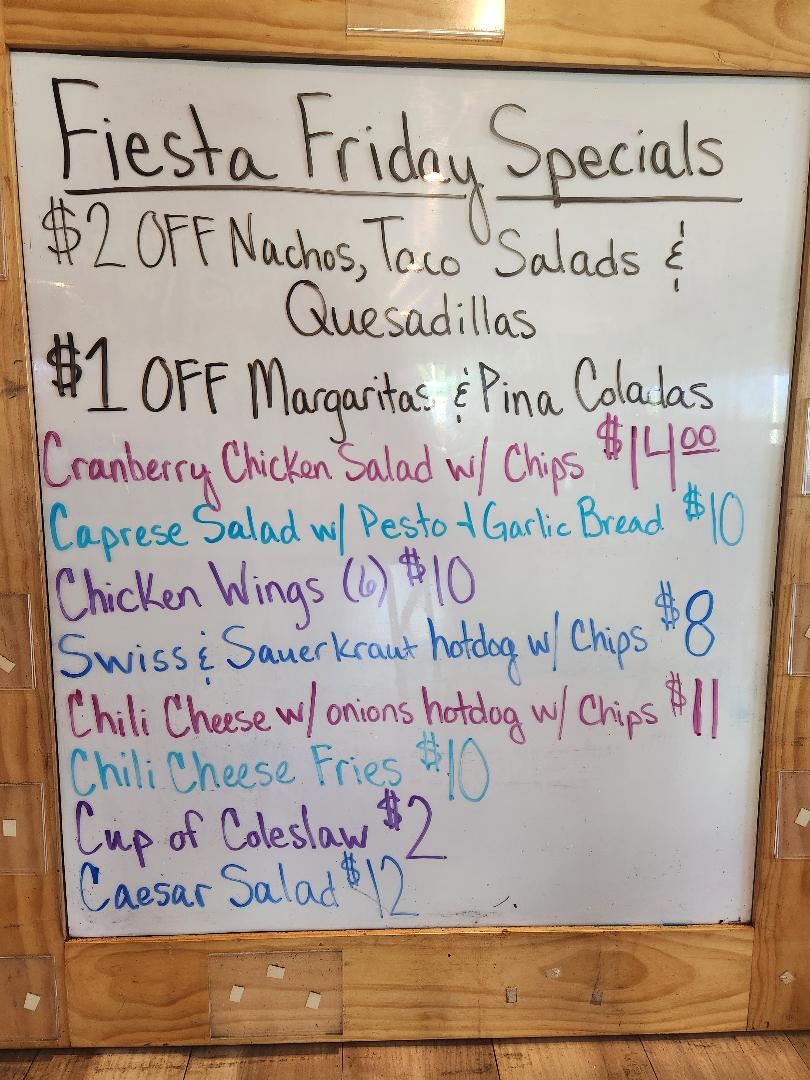 Fiesta Friday Specials
$2 OFF Nachos, Taco Salads &
Quesadillas
$1 OFF Margaritas & Pina Coladas
Cranberry Chicken Salad w/ Chips $14.00
Caprese Salad w/ Pesto + Garlic Bread $10
Chicken Wings (6) $10
Swiss & Sauerkraut hotdog w/ Chips $8
Chili Cheese w/ onions hotdog w/ Chips $11
Chili Cheese Fries $10
Cup of Coleslaw $2
Caesar Salad $12